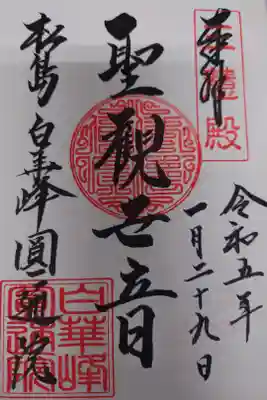 奉拝
三慧殿
令和五年
一月二十九日
聖観世音
松島 白華峰圓通院
白華峰
圓通院